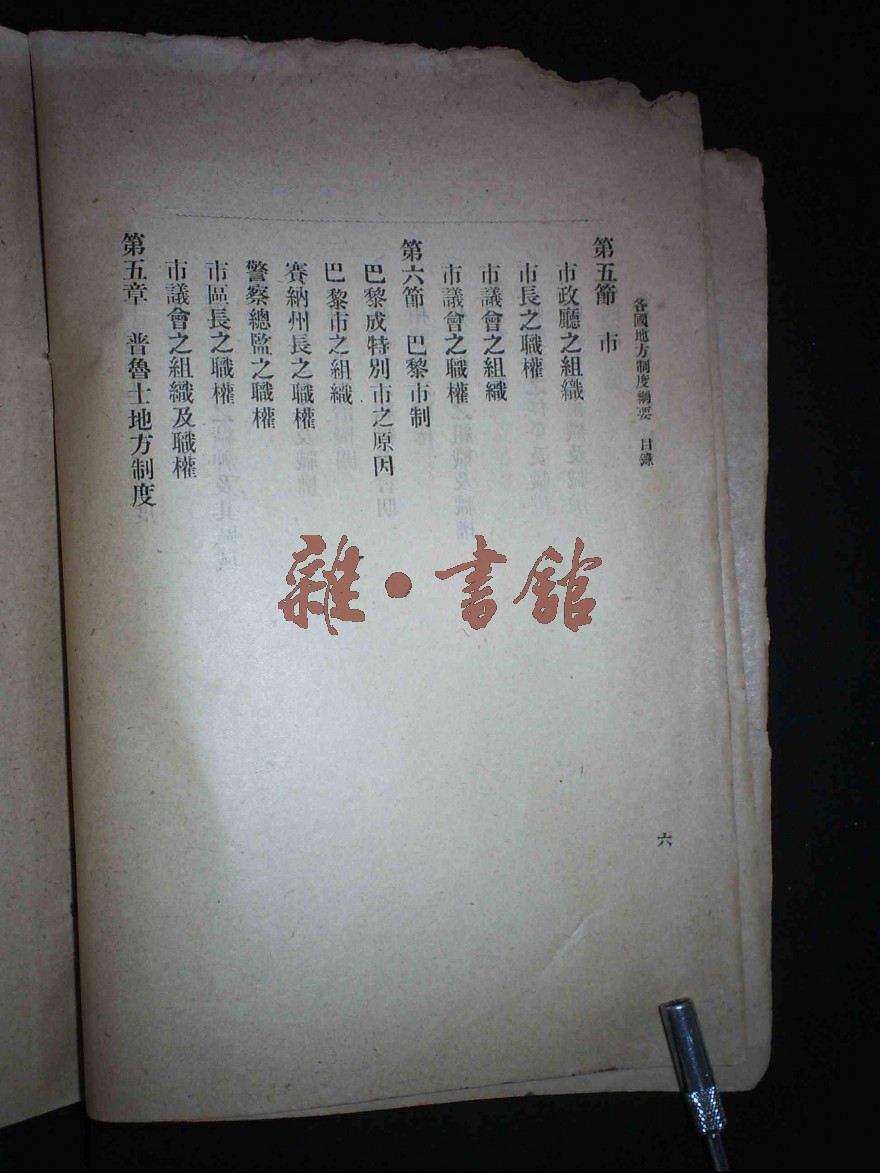 各國地方制度綱要　目錄
第五節　市
市政廳之組織
市長之職權
市議會之組織
市議會之職權
第六節　巴黎市制
巴黎成特別市之原因
巴黎市之組織
賽納州長之職權
警察總監之職權
市區長之職權
市議會之組織及職權
第五章　普魯士地方制度
六
雜·書館